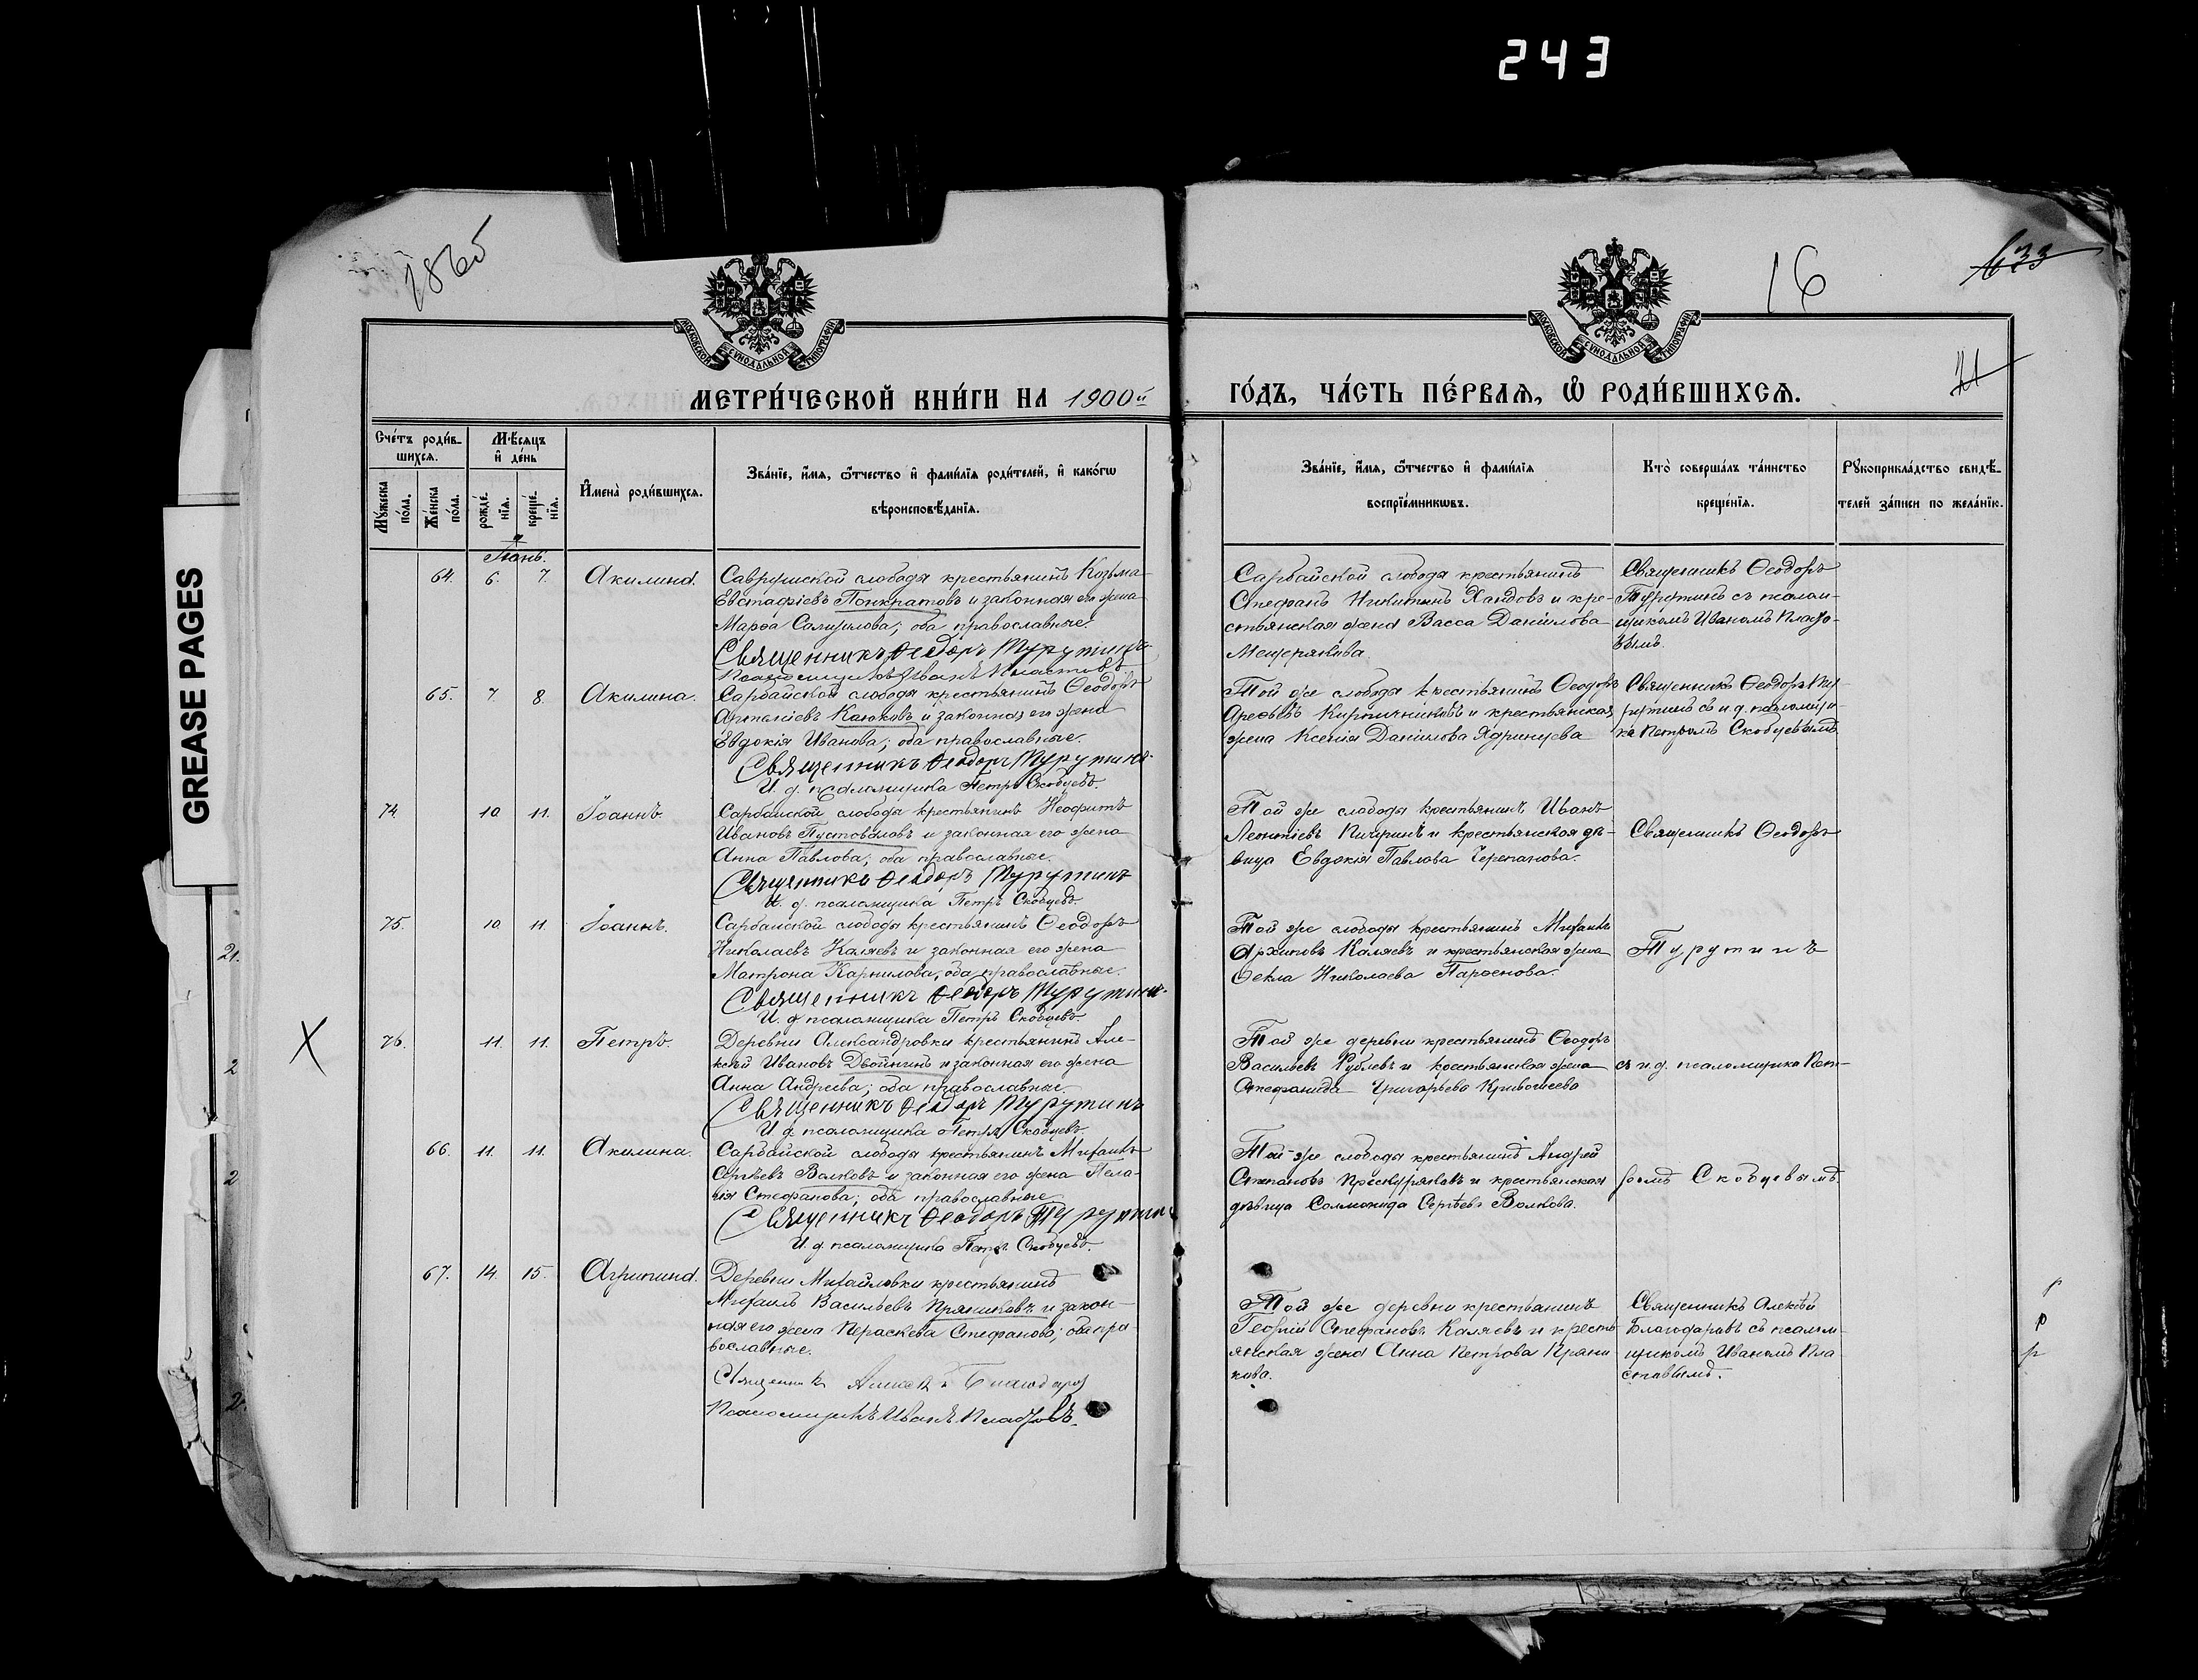 243
GREASE PAGES
16
633
21
МОСКОВСКОЙ СѴНОДАЛЬНОЙ ТИПОГРАФІИ
МОСКОВСКОЙ СѴНОДАЛЬНОЙ ТИПОГРАФІИ
МЕТРИ́ЧЕСКОЙ КНИ́ГИ НА 1900й
ГО́ДЪ, ЧА́СТЬ ПЕ́РВАЯ, Ѡ҆ РОДИ́ВШИХСЯ.
Сче́тъ роди́в-
шихся.
Мѣ́сяцъ
и҆ де́нь
Мꙋ́жеска
по́ла.
Же́нска
по́ла.
рожде́-
нїя.
креще́-
нїя.
И҆мена̀ роди́вшихся.
Зва́нїе, и҆́мя, ѻ҆́тчество и҆ фами́лїѧ роди́телей, и҆ како́гѡ
вѣроисповѣ́данїя.
Зва́нїе, и҆́мя, ѻ҆́тчество и҆ фами́лїѧ
воспрїе́мникѡвъ.
Кто̀ соверша́лъ та́инство
креще́нїя.
Рꙋкоприкла́дство свидѣ́-
телей за́писи по жела́нїю.
Іюнь.
64. 6. 7. Акилина.
Саврушской слободы крестьянинъ Козьма
Евстафіевъ Понкратовъ и законная его жена
Марѳа Самуилова; оба православные.
Священникъ Ѳеодоръ Турутинъ
Псаломщикъ Иванъ Пластовъ
Сарбайской слободы крестьянинъ
Стефанъ Никитинъ Хандовъ и кре-
стьянская жена Васса Даніилова
Мещерякова.
Священникъ Ѳеодоръ
Турутинъ съ псалом-
щикомъ Иваномъ Пласто-
вымъ.
65. 7. 8. Акилина.
Сарбайской слободы крестьянинъ Ѳеодоръ
Антоніевъ Каюковъ и законная его жена
Евдокія Иванова; оба православные.
Священникъ Ѳеодоръ Турутинъ.
И. д. псаломщика Петръ Скобцевъ.
Той же слободы крестьянинъ Ѳеодоръ
Арефьевъ Кирпичниковъ и крестьянская
жена Ксенія Даніилова Ядринцева
Священникъ Ѳеодоръ Ту-
рутинъ съ и. д. псаломщи-
ка Петромъ Скобцевымъ.
74. 10. 11. Іоаннъ.
Сарбайской слободы крестьянинъ Неофитъ
Ивановъ Пустоваловъ и законная его жена
Анна Павлова; оба православные.
Священникъ Ѳеодоръ Турутинъ
И. д. псаломщика Петръ Скобцевъ.
Той же слободы крестьянинъ Иванъ
Леонтіевъ Пичуринъ и крестьянская дѣ-
вица Евдокія Павлова Черепанова.
Священникъ Ѳеодоръ
75. 10. 11. Іоаннъ.
Сарбайской слободы крестьянинъ Ѳеодоръ
Николаевъ Каляевъ и законная его жена
Матрона Карнилова; оба православные.
Священникъ Ѳеодоръ Турутинъ.
И. д. псаломщика Петръ Скобцевъ.
Той же слободы крестьянинъ Михаилъ
Архиповъ Каляевъ и крестьянская жена
Ѳекла Николаева Парѳенова.
Турутинъ
Х
76. 11. 11. Петръ.
Деревни Александровки крестьянинъ Але-
ксѣй Ивановъ Двойнинъ и законная его жена
Анна Андреева; оба православные.
Священникъ Ѳеодоръ Турутинъ
И. д. псаломщика Петръ Скобцевъ.
Той же деревни крестьянинъ Ѳеодоръ
Васильевъ Рублевъ и крестьянская жена
Стефанида Григорьева Кривошеева
съ и. д. псаломщика Пет-
66. 11. 11. Акилина.
Сарбайской слободы крестьянинъ Михаилъ
Сергѣевъ Волковъ и законная его жена Пела-
гія Стефанова; оба православные
Священникъ Ѳеодоръ Турутинъ
И. д. псаломщика Петръ Скобцевъ.
Той же слободы крестьянинъ Андрей
Степановъ Проскуряковъ и крестьянская
дѣвица Соломонида Сергѣева Волкова.
ромъ Скобцевымъ.
67. 14. 15. Агрипина.
Деревни Михайловки крестьянинъ
Михаилъ Васильевъ Пряниковъ и закон-
ная его жена Параскева Стефанова; оба пра-
вославные.
Священникъ Алексѣй Благодаровъ
Псаломщикъ Иванъ Пластовъ.
Той же деревни крестьянинъ
Георгій Стефановъ Каляевъ и кресть-
янская жена Анна Петрова Пряни
кова.
Священникъ Алексѣй
Благодаровъ съ псалом-
щикомъ Иваномъ Пла-
стовымъ.